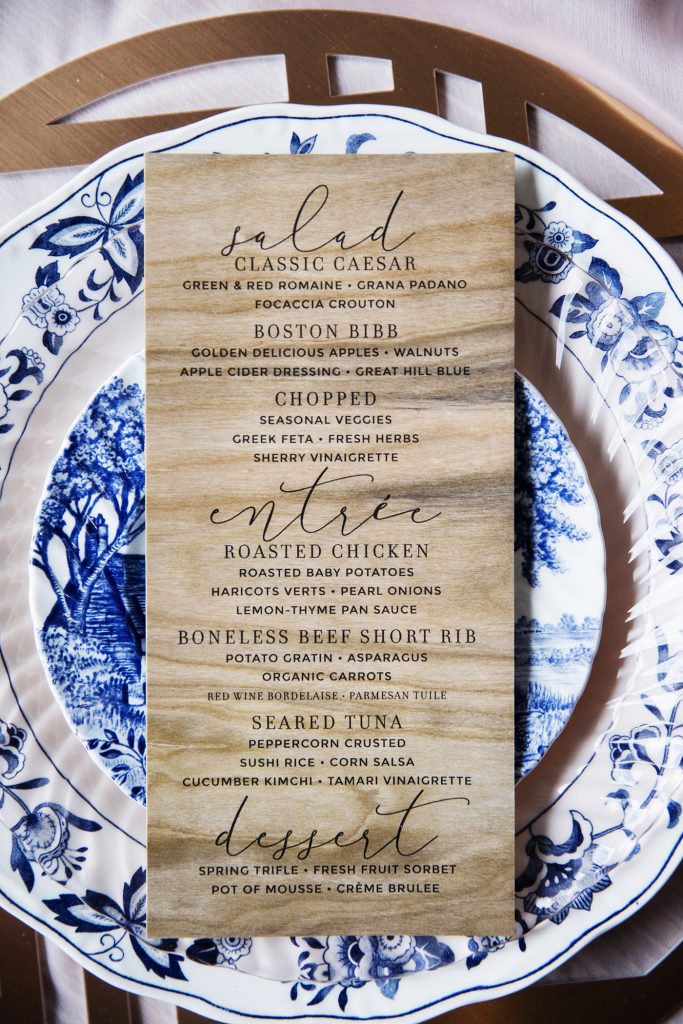 salad
CLASSIC CAESAR
GREEN & RED ROMAINE • GRANA PADANO
FOCACCIA CROUTON
BOSTON BIBB
GOLDEN DELICIOUS APPLES • WALNUTS
APPLE CIDER DRESSING • GREAT HILL BLUE
CHOPPED
SEASONAL VEGGIES
GREEK FETA • FRESH HERBS
SHERRY VINAIGRETTE
entrée
ROASTED CHICKEN
ROASTED BABY POTATOES
HARICOTS VERTS • PEARL ONIONS
LEMON-THYME PAN SAUCE
BONELESS BEEF SHORT RIB
POTATO GRATIN • ASPARAGUS
ORGANIC CARROTS
RED WINE BORDELAISE • PARMESAN TUILE
SEARED TUNA
PEPPERCORN CRUSTED
SUSHI RICE • CORN SALSA
CUCUMBER KIMCHI • TAMARI VINAIGRETTE
dessert
SPRING TRIFLE • FRESH FRUIT SORBET
POT OF MOUSSE • CRÈME BRULEE